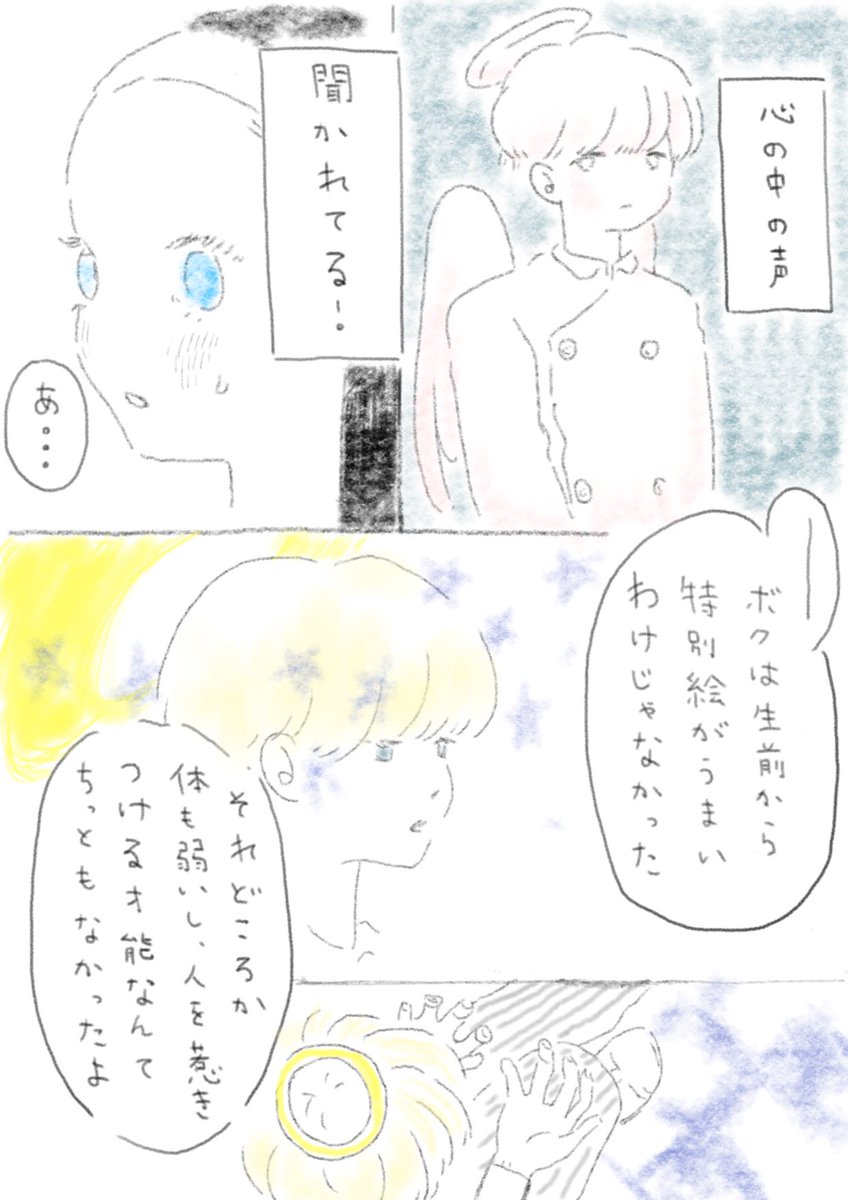 心の中の声
聞かれてる!
あ…
ボクは生前から
特別絵がうまい
わけじゃなかった
それどころか
体も弱いし、人を惹き
つける才能なんて
ちっともなかったよ